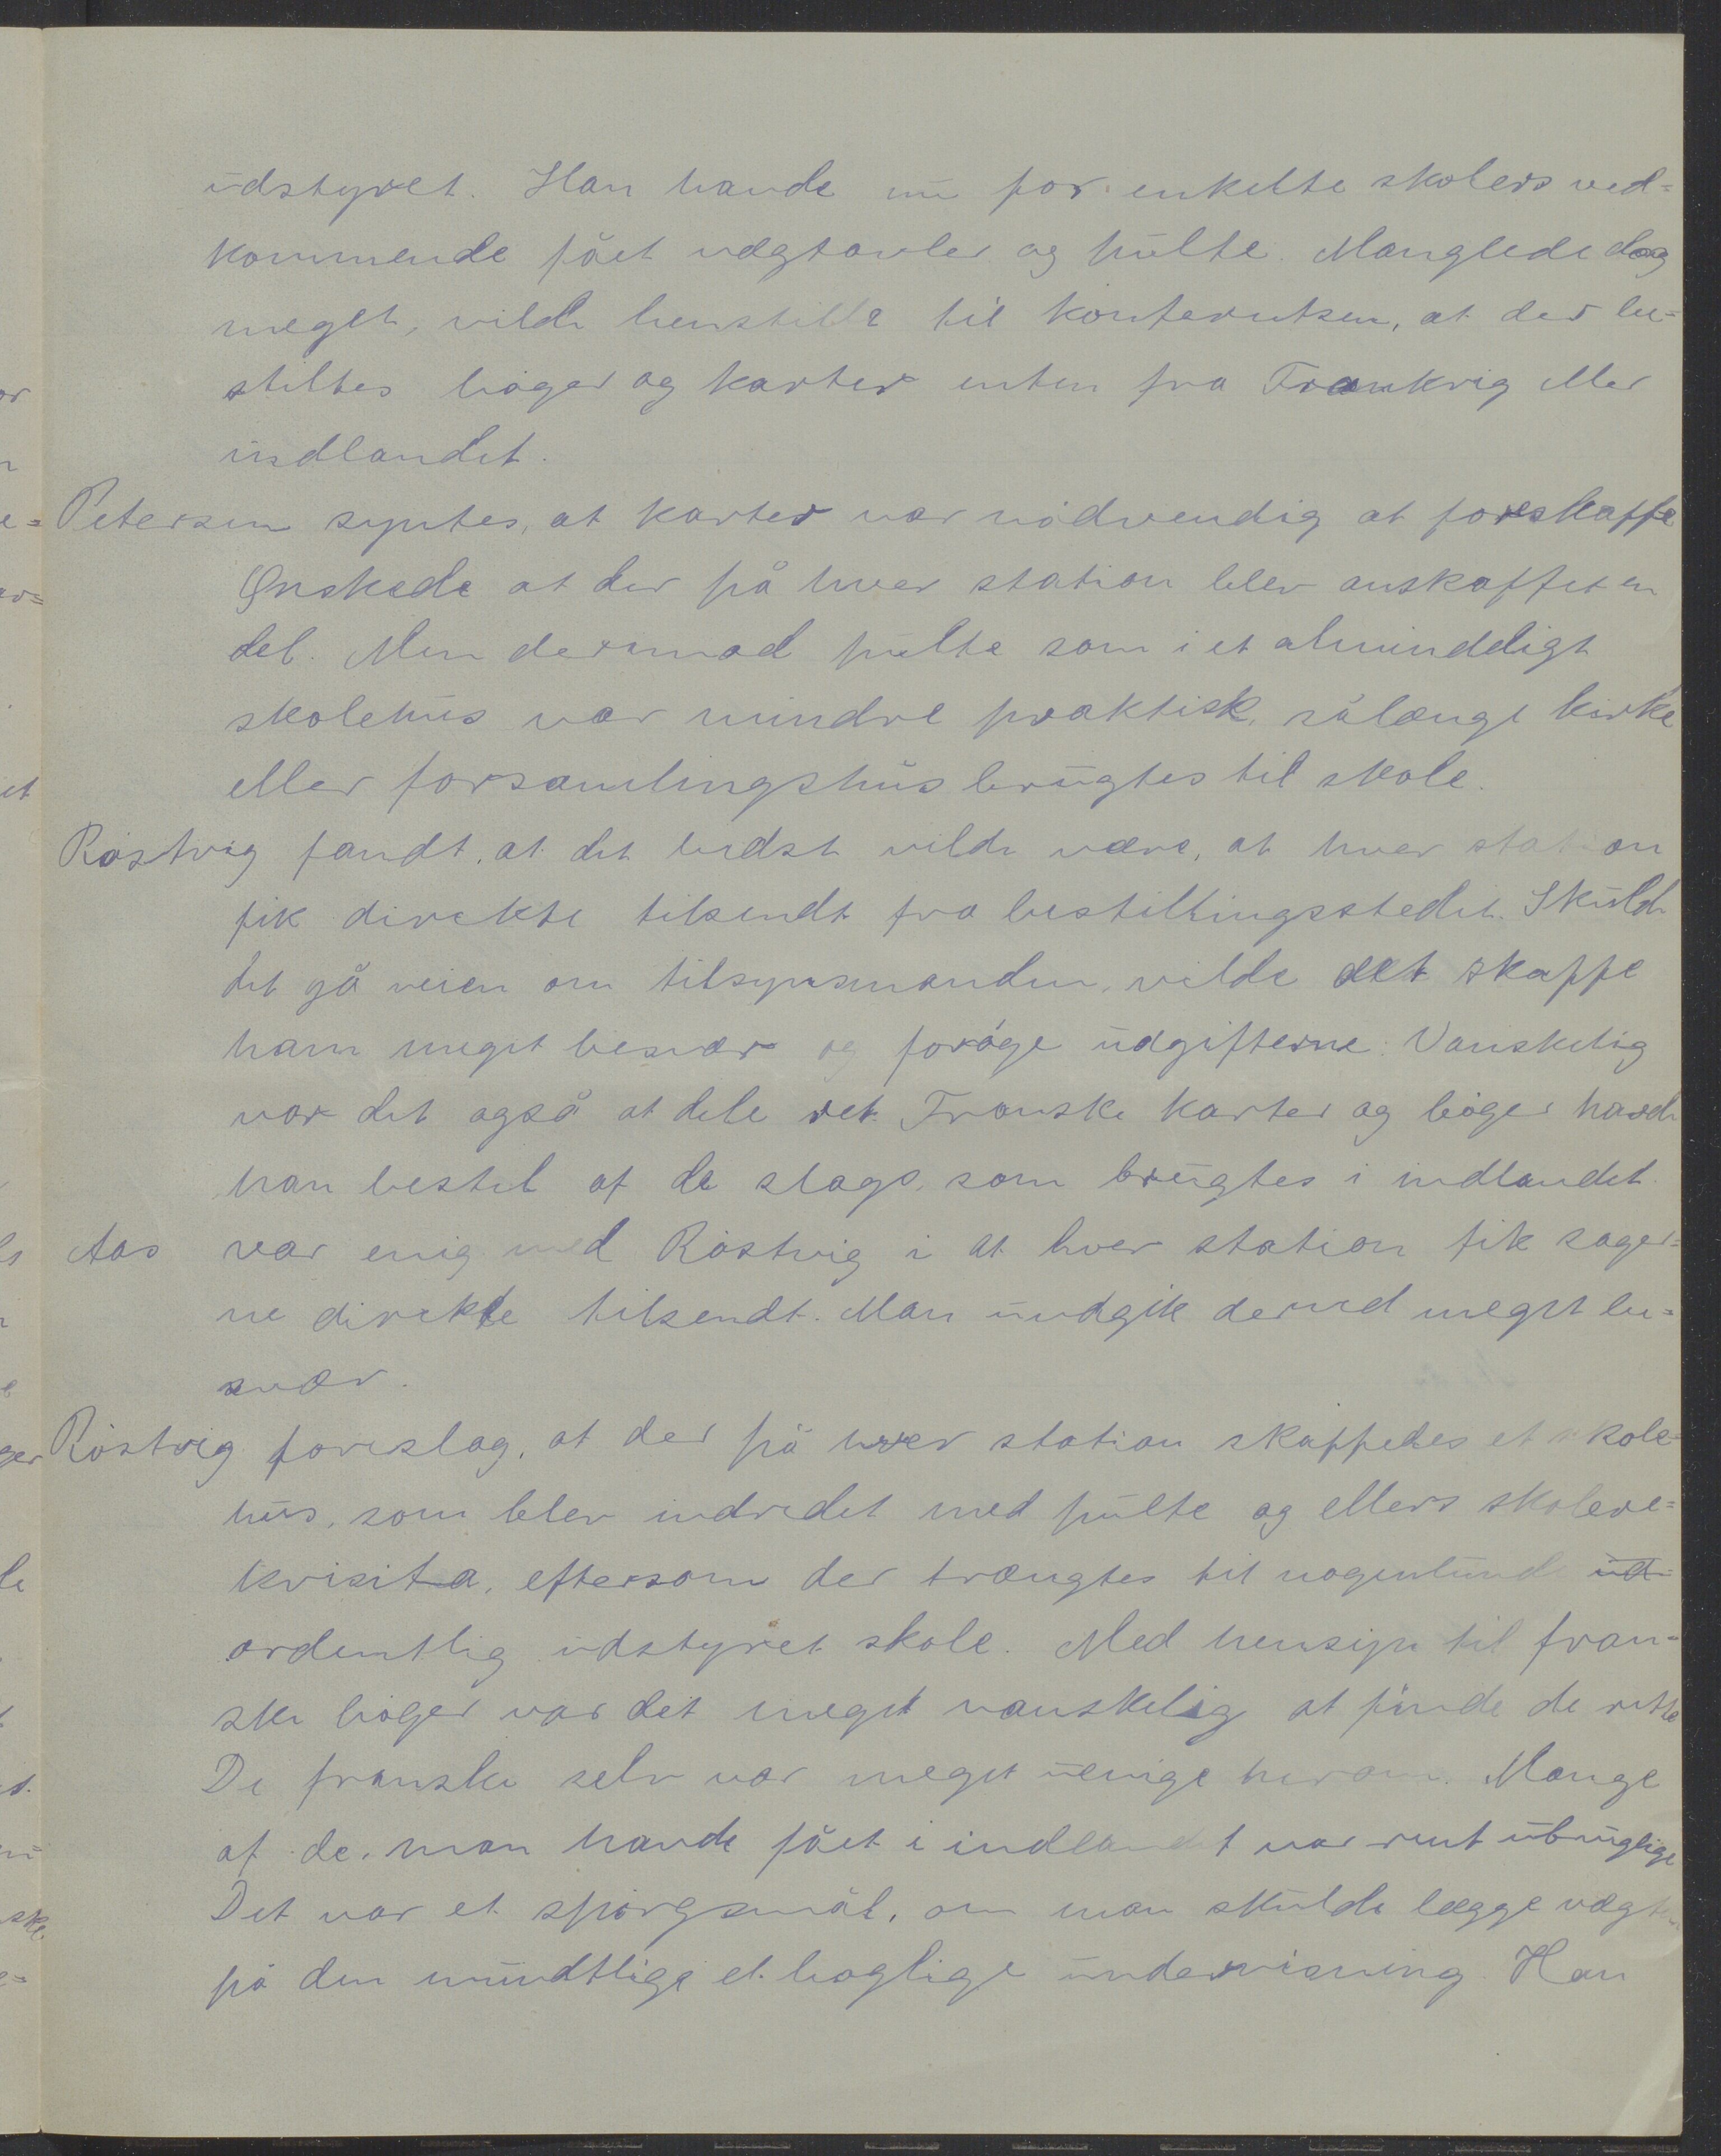 udstyret. Han havde nu for enkelte skolers ved=
kommende fået vægtavler og pulte. Manglede dog
meget, vilde henstille til konferentsen, at der be=
stiltes bøger og karter enten fra Frankrig eller
indlandet.
Petersen syntes, at karter var nødvendig at forskaffe
Ønskede at der på hver station blev anskaffet en
del. Men derimod pulte som i et almindeligt
skolehus var mindre praktisk, sålænge kirke
eller forsamlingshus brugtes til skole.
Röstvig fandt, at det bedst vilde være, at hver station
fik direkte tilsendt fra bestillingsstedet. Skulde
det gå veien om tilsynsmanden, vilde det skaffe
ham meget besvær og forøge udgifterne. Vanskelig
var det også at dele ret. Franske karter og bøger havde
han bestil af de slags, som brugtes i indlandet.
Aas var enig med Röstvig i at hver station fik sager=
ne direkte tilsendt. Man undgik derved meget be=
svær.
Röstvig foreslog, at der på hver station skaffedes et skole=
hus, som blev indredet med pulte og ellers skolere=
kvisita, eftersom der trængtes til nogenlunde ud=
ordentlig udstyret skole. Med hensyn til fran=
ske bøger var det meget vanskelig at finde de rette
De franske selv var meget uenige herom. Mange
af de, man havde fået i indlandet var rent ubruglige
Det var et spørgsmål, om man skulde lægge vægten
på den mundtlige el. boglige undervisning. Han